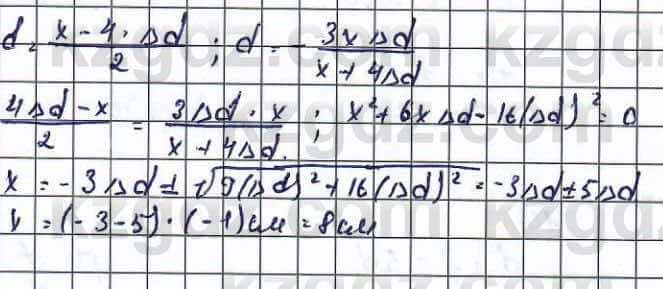 d = (x - 4 · Δd)/2 ; d = - 3xΔd/(x + 4Δd)
(4Δd - x)/2 = (3Δd · x)/(x + 4Δd) ; x² + 6xΔd - 16(Δd)² = 0
x = -3Δd ± √(9(Δd)² + 16(Δd)²) = -3Δd ± 5Δd
x = (-3-5) · (-1) см = 8 см